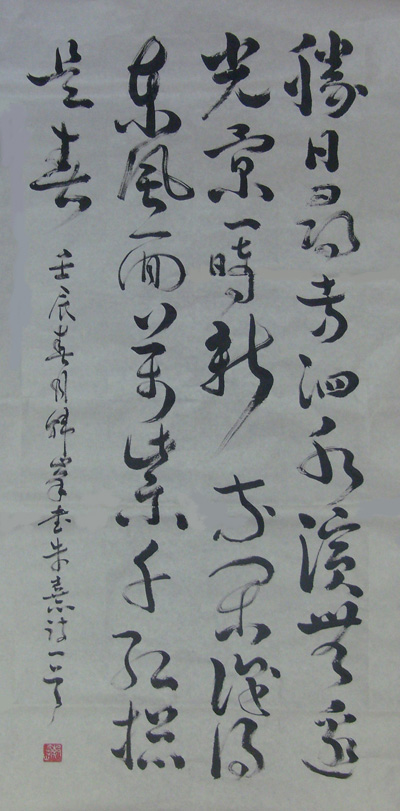 勝日尋芳泗水濱無邊
光景一時新等閒識得
東風面萬紫千紅總
是春
壬辰春月峯書朱熹詩一首